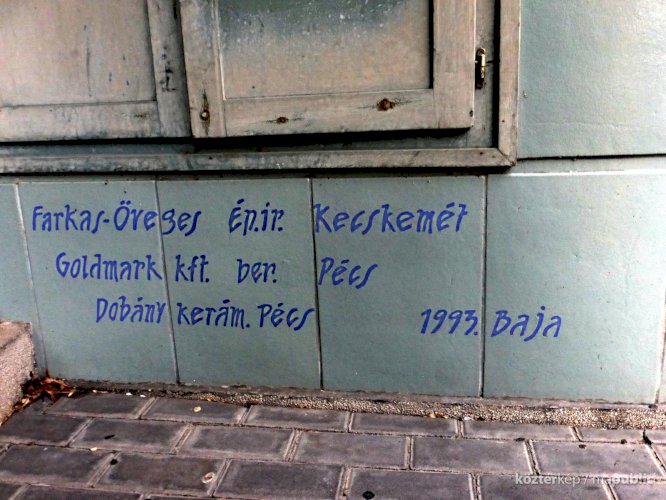 Farkas-Öveges Ép.ir. Kecskemét
Goldmark kft. ber. Pécs
Dobány kerám. Pécs 1993. Baja
köztérkép /